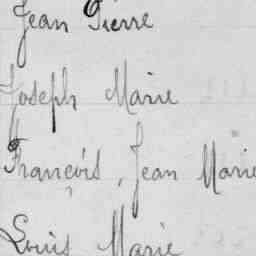 Jean Pierre
Joseph Marie
François, Jean Marie
Louis Marie